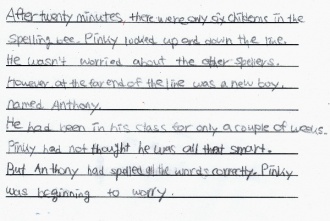 After twenty minutes, there were only six childrens in the
spelling bee. Pinky looked up and down the line.
He wasn't worried about the other spellers.
However at the far end of the line was a new boy.
named Anthony.
He had been in his class for only a couple of weeks.
Pinky had not thought he was all that smart.
But Anthony had spelled all the words correctly. Pinky
was beginning to worry.